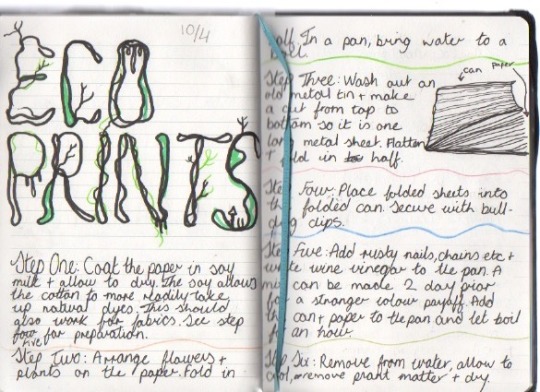 10/4
ECO
PRINTS
Step One: Coat the paper in soy
milk + allow to dry. The soy allows
the cotton to more readily take
up natural dyes. This should
also work for fabrics. See step
five for preparation.
Step Two: Arrange flowers +
plants on the paper. Fold in
half. In a pan, bring water to a
boil.
Step Three: Wash out an
old metal tin + make
a cut from top to
bottom so it is one
long metal sheet. Flatten
+ fold in half.
can
paper
Step Four: Place folded sheets into
the folded can. Secure with bull-
dog clips.
Step Five: Add rusty nails, chains etc +
white wine vinegar to the pan. A
mix can be made 2 days prior
for a stronger colour payoff. Add
the can + paper to the pan and let boil
for an hour.
Step Six: Remove from water, allow to
cool, remove plant matter + dry